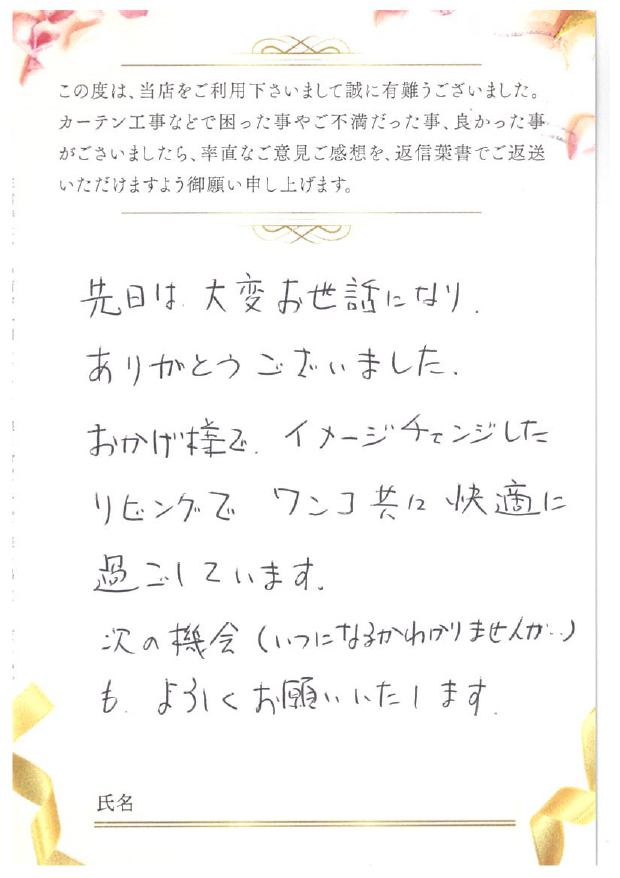 この度は、当店をご利用下さいまして誠に有難うございました。
カーテン工事などで困った事やご不満だった事、良かった事
がございましたら、率直なご意見ご感想を、返信葉書でご返送
いただけますよう御願い申し上げます。
先日は、大変お世話になり、
ありがとうございました。
おかげ様で、イメージチェンジした
リビングで ワンコ共に 快適に
過ごしています。
次の機会(いつになるかわかりませんが…)
も、よろしくお願いいたします。
氏名